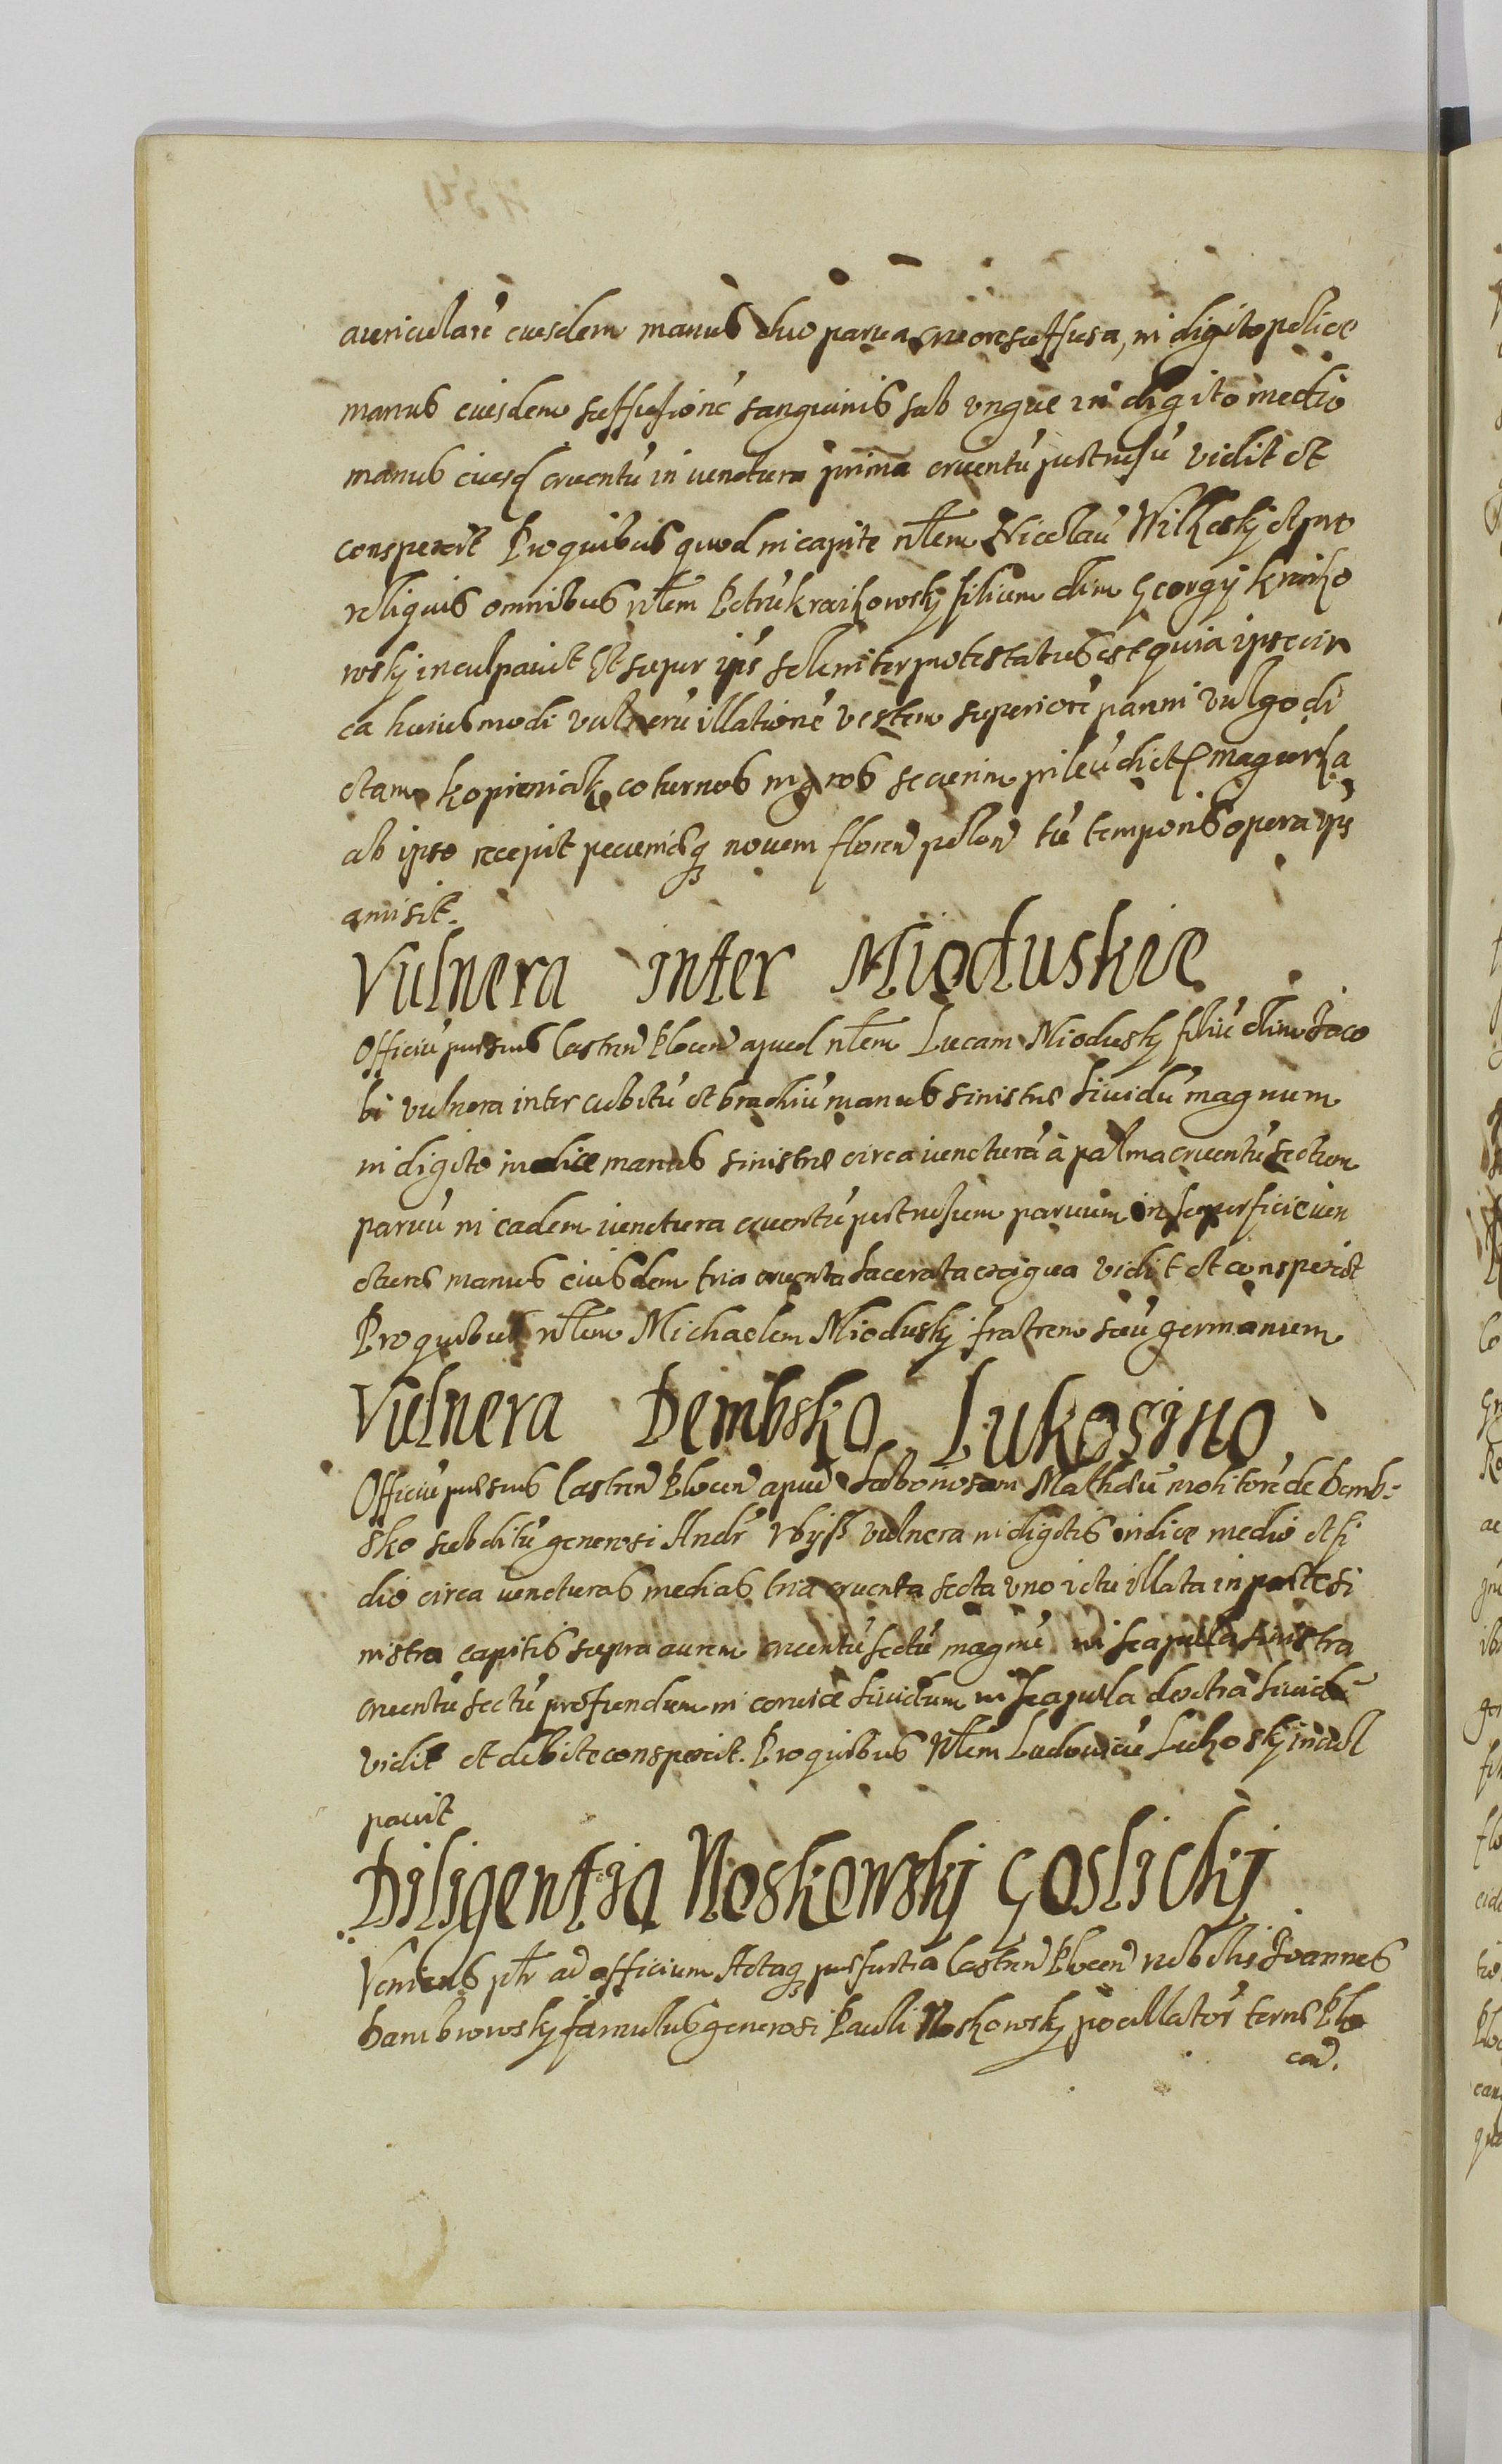 auricularē eiusdem manus duo parua cruore suffusa, in digito police
manus eiusdem suffusionē sanguinis sub vngue in digito medio
manus eiusd cruentū in iunctura prima cruentū pertusū vidit et
conspexit Pro quibus quod in capite nlem Nicolaū Wilkosky et pro
reliquis omnibus nlem Petrū kraikowsky filium olim Georgÿ kraiko
wsky inculpauit Et super ips solemniter protestatus est quia ipse cir
ca huiusmodi vulnerū illationē vestem superiorē panni vulgo di
ctam kopieniak coturnos nigros securim pileū dict magierka
ab ipso recepit pecunias novem floren polon tū temporis opera ips
amisit.
Vulnera inter Mioduskie
Officiū presens Castren Plocen apud nlem Lucam Miodusky filiū olim Jaco
bi vulnera inter cubitū et brachiū manus sinistre liuidū magnum
in digito indice manus sinistre circa iuncturā à palma cruentū sectum
paruū in eadem iunctura cruentū pertusum paruum in superficie iun
cture manus eiusdem tria cruenta lacerata exigua vidit et conspexit
Pro quibus nlem Michaelem Miodusky fratrem suū germanum
Vulnera Dembsko Lukosino
Officiū presens Castren Plocen apud Laboriosum Mathæū molitorē de Demb-
sko subditū generosi Andr vulnera in digitis indice medio et
dio circa iuncturas medias tria cruenta secta vno ictu illata in parte si
nistra capitis supra aurem cruentū sectū magnū in scapula sinistra
cruentū sectū profundum in ceruice liuidum in scapula dextra liuidū
vidit et debite conspexit. Pro quibus Nlem Ludouicū Lukosky incul
pauit
Diligentia Noskowskj Goslickj
Veniens ad officium Actaq presentia Castren Plocen nobilis Joannes
Dambrowsky famulus generosi Pauli Noskowsky pocillator terre Plo
cen.